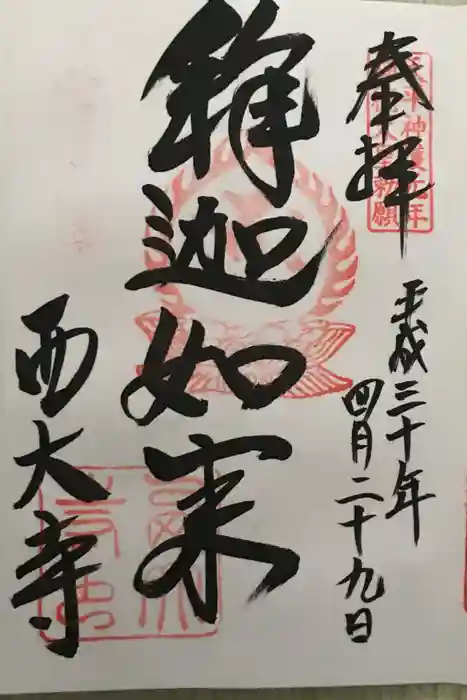 奉拝
平成三十年
四月二十九日
釋迦如来
西大寺